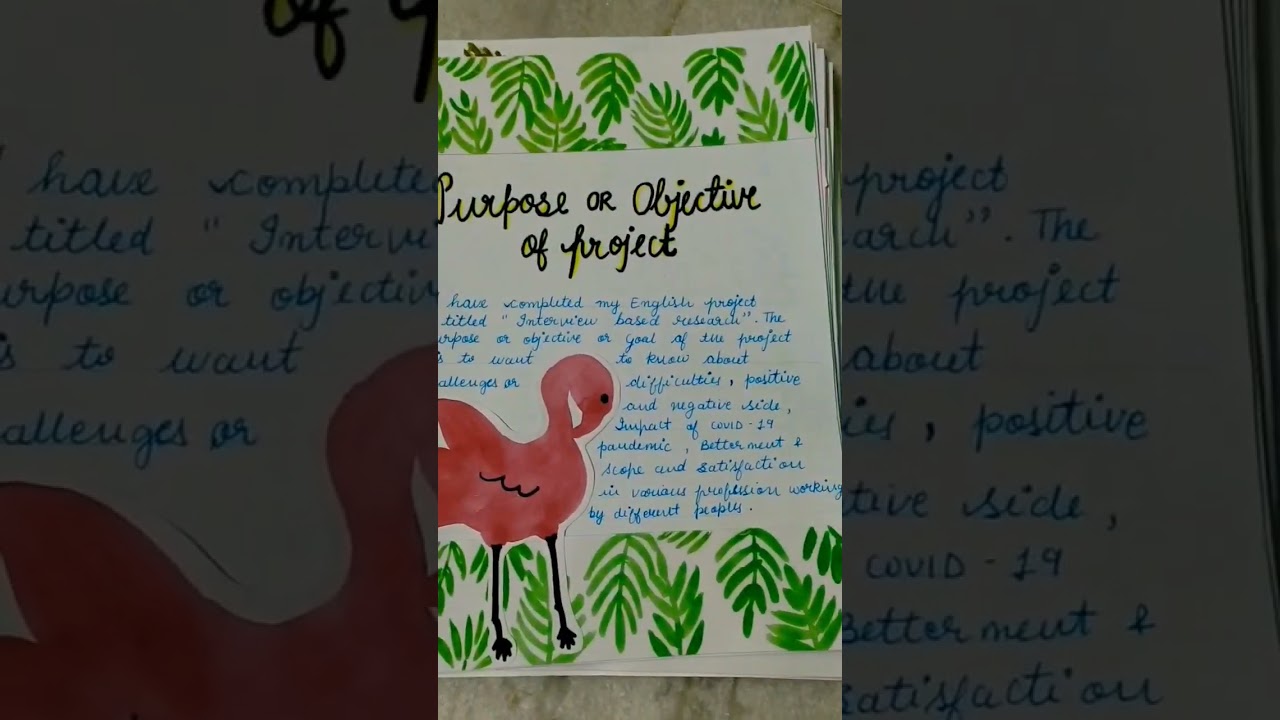 Purpose or Objective
of project
have completed my English project
titled "Interview based research". The
urpose or objective or goal of the project
is to want to know about
allenges or difficulties, positive
and negative side,
Impact of COVID-19
pandemic, Betterment &
scope and satisfaction
in various profession working
by different peoples.